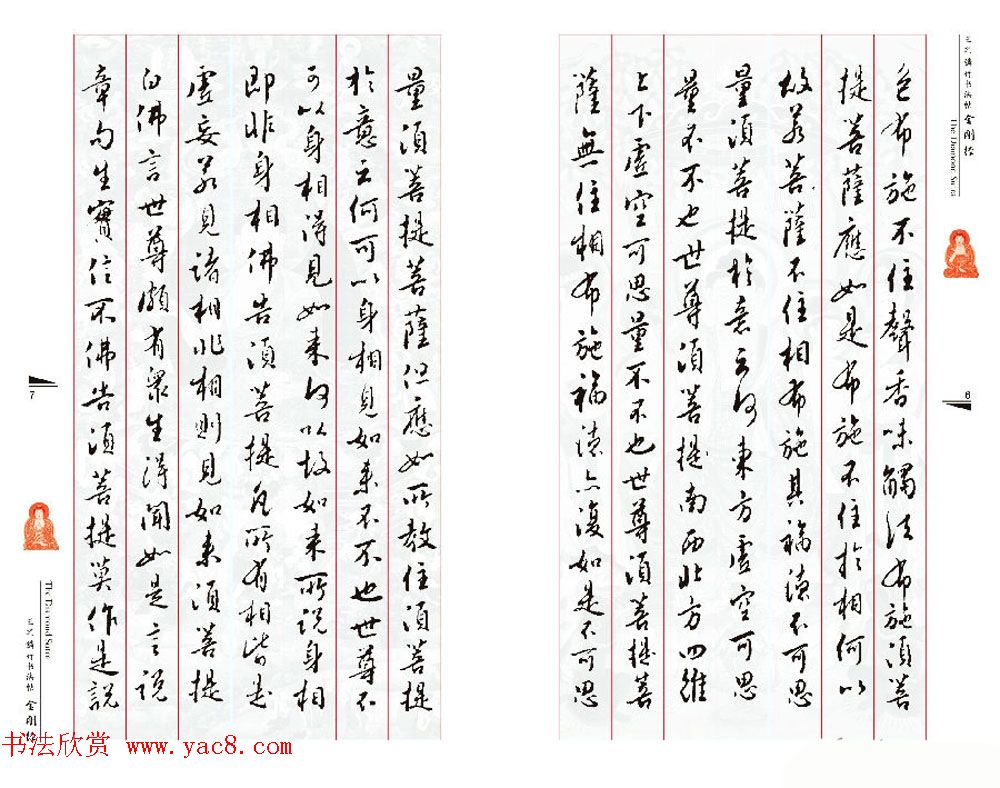 色布施不住聲香味觸法布施須菩
提菩薩應如是布施不住於相何以
故若菩薩不住相布施其福德不可思
量須菩提於意云何東方虛空可思
量不不也世尊須菩提南西北方四維
上下虛空可思量不不也世尊須菩提菩
薩無住相布施福德亦復如是不可思
金剛經
The Diamond Sutra
6
量須菩提菩薩但應如所教住須菩提
於意云何可以身相見如來不不也世尊不
可以身相得見如來何以故如來所說身相
即非身相佛告須菩提凡所有相皆是
虛妄若見諸相非相則見如來須菩提
白佛言世尊頗有眾生得聞如是言說
章句生實信不佛告須菩提莫作是說
7
The Diamond Sutra
金剛經
书法欣赏 www.yac8.com